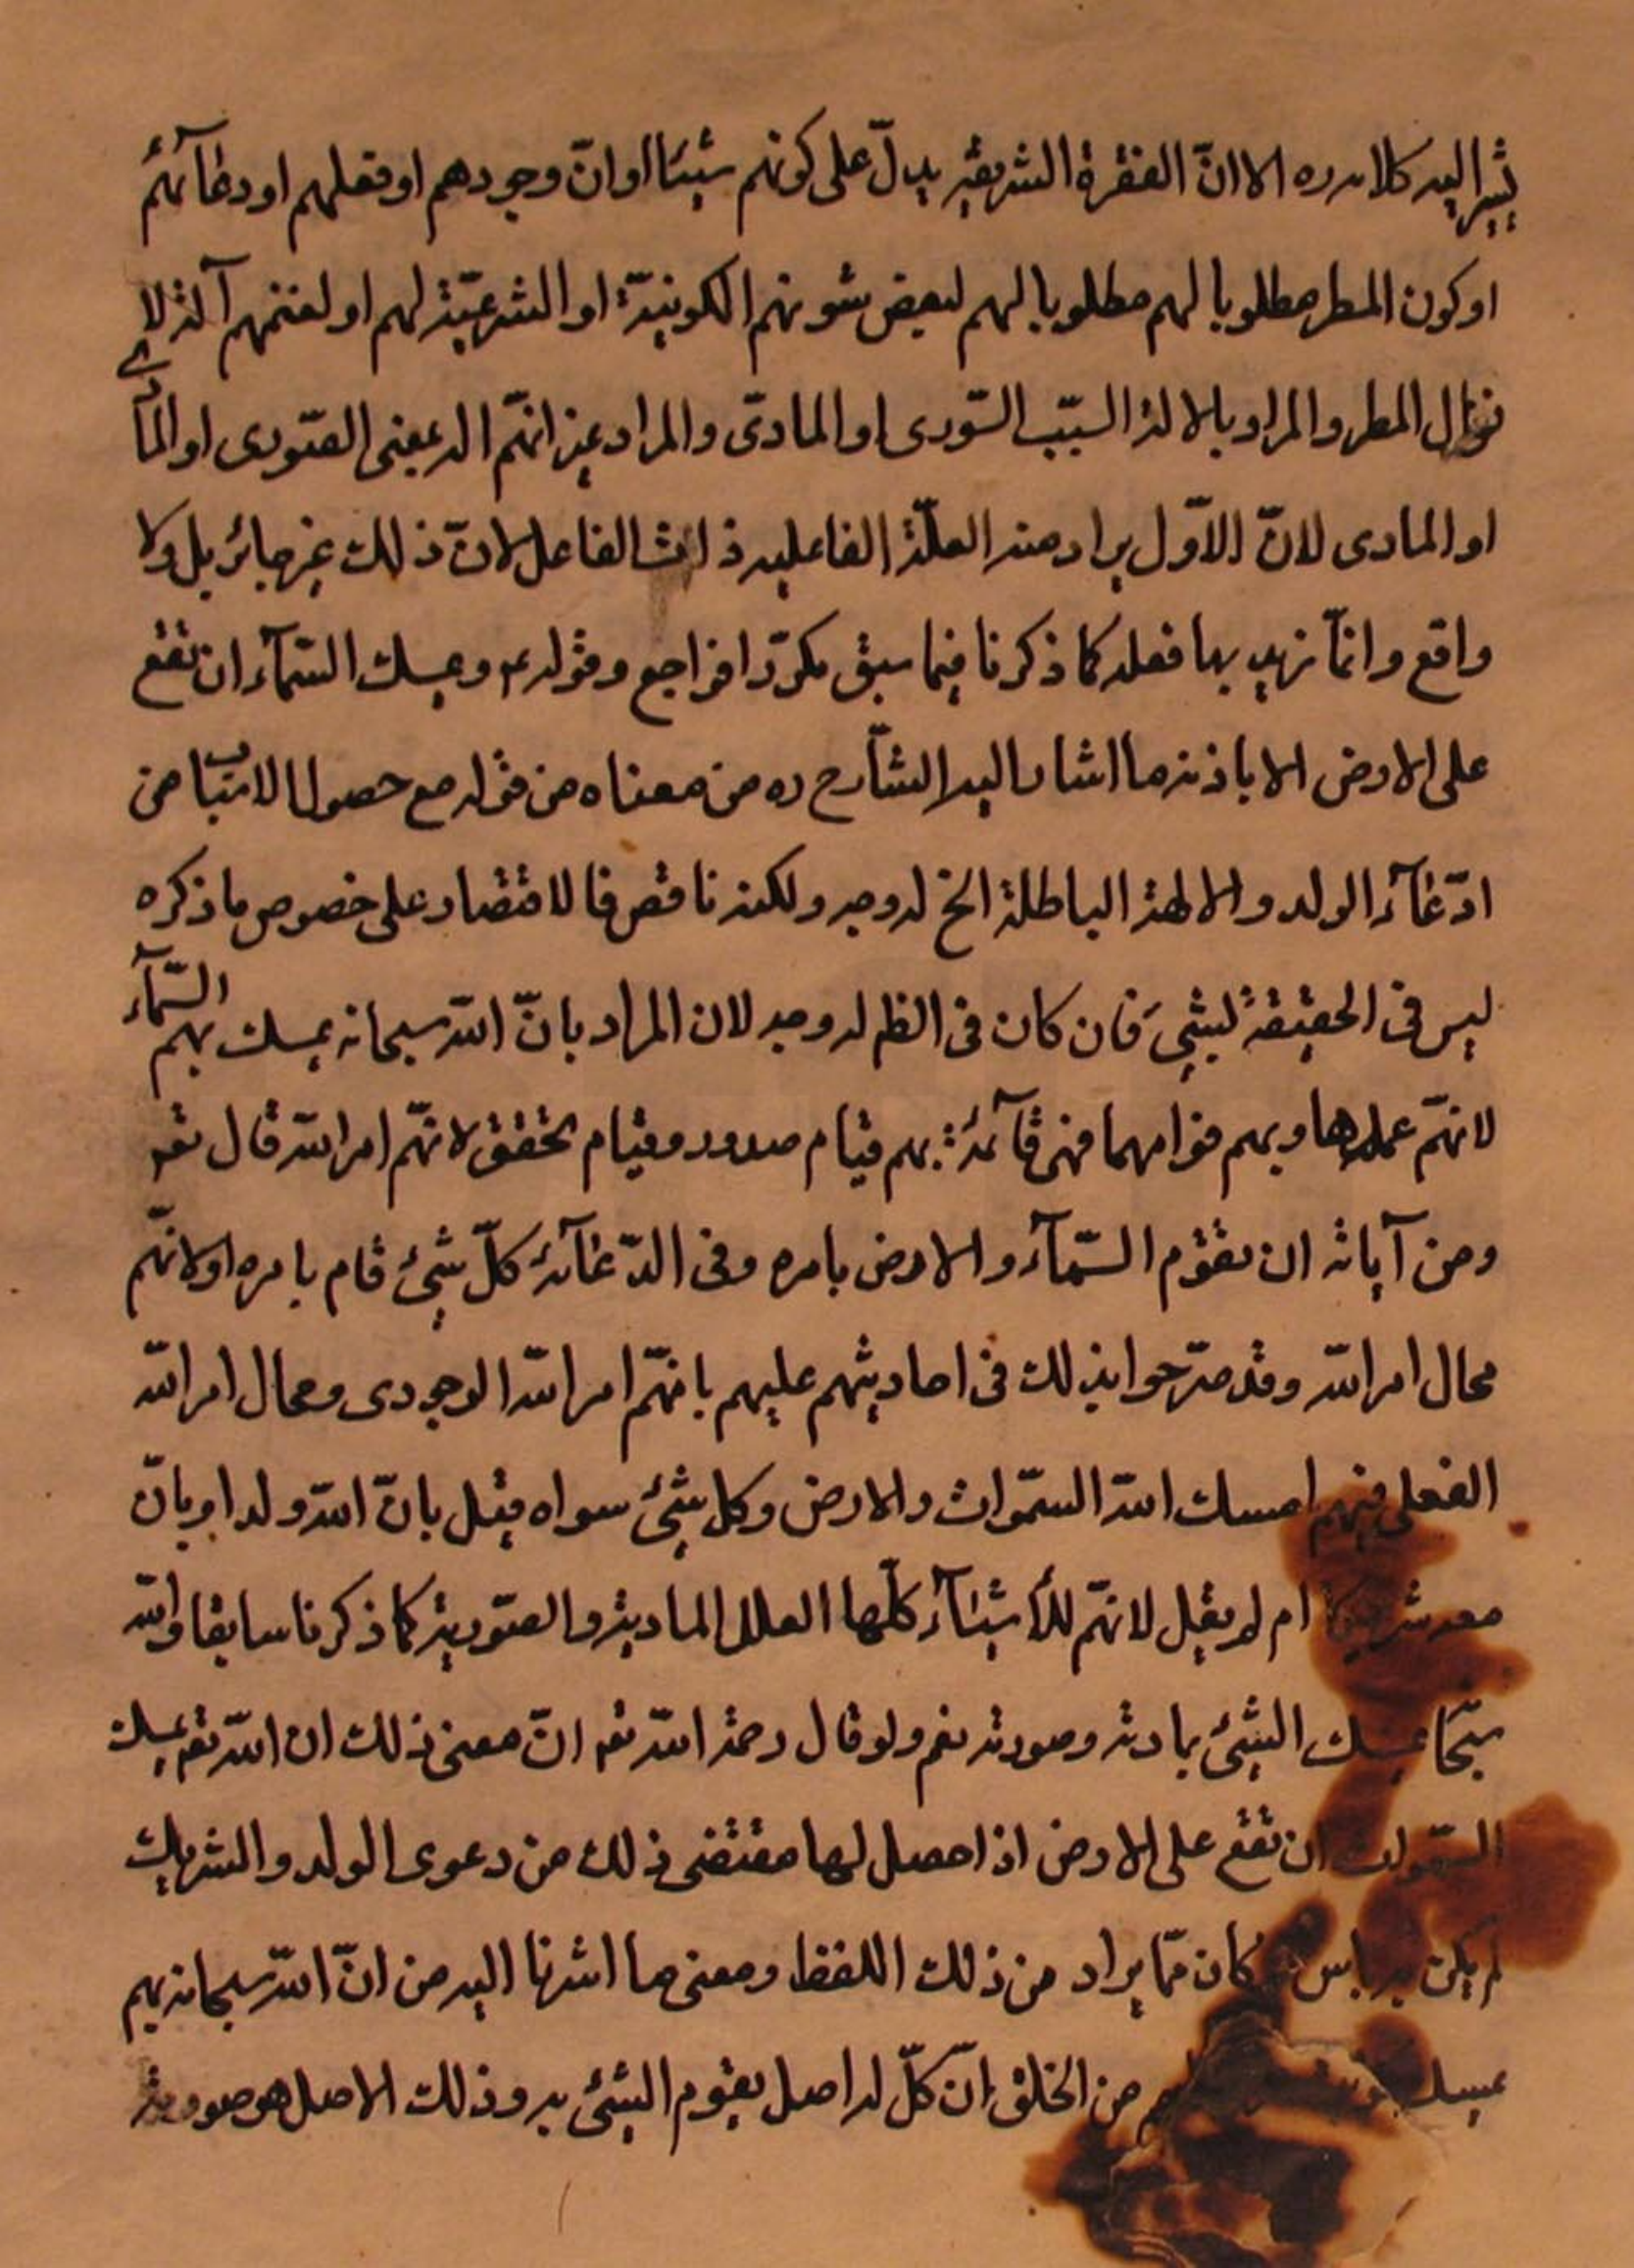 يشير اليه كلامه ره الا انّ الفقرة الشريفة يدلّ على كونهم شيئا او انّ وجودهم او فعلهم او دعآئهم
او كون المطر مطلوبا لهم مطلوبا لهم لبعض شونهم الكونيّة او الشرعيّة لهم او لغنمهم آلة لا
نزال المطر والمراد بالالة السّبب السّورى او المادّى والمراد انّهم الة بمعنى الصّورى او
او المادى لانّ الاوّل يراد منه العلّة الفاعليه ذات الفاعل لانّ ذلك غير جائز بل ولا
واقع وانمّا نريد بها فعله كما ذكرنا فيما سبق مكرّرا فراجع وقوله ع ويمسك السّمآء ان تقع
على الارض الا باذنه ما اشار اليه الشّارح ره من معناه من قوله مع حصول الاسباب من
ادّعآء الولد والالهة الباطلة الخ له وجه ولكنه ناقص فالاقتصار على خصوص ما ذكره
ليس فى الحقيقة لبشئ فان كان فى الظ له وجه لان المراد بانّ اللّه سبحانه يمسك بهم السّمآء
لانهّم عمدها وبهم قوامهما فهى قآئمة بهم قيام صدور وقيام تحقق لانهّم امر اللّه قال تعه
ومن آياته ان تقوم السّمآء والارض بامره وفى الدّعآء كلّ شئ قام بامره او لانهّم
محال امر اللّه وقد صرّحوا بذلك فى احاديثهم عليهم بانهّم امر اللّه الوجودى ومحال امر اللّه
الفعلى فبهم امسك اللّه السّموات والارض وكل شئ سواه قيل بانّ للّه ولدا او بانّ
معه شريكا ام لم يقل لانهّم للأشيآء كلّها العلل المادية والصّورية كما ذكرنا سابقا واللّه
سبحا يمسك الشئ بمادته وصورته نعم ولو قال رحمة اللّه تعه انّ معنى ذلك ان اللّه تعه يمسك
السّموات ان تقع على الارض اذا حصل لها مقتضى ذلك من دعوى الولد والشريك
لم يكن به باس كان ممّا يراد من ذلك اللفظ ومعنى ما اشرنا اليه من انّ اللّه سبحانه بهم
يمسك من الخلق انّ كلّ له اصل يقوم الشئ به وذلك الاصل هو صورته